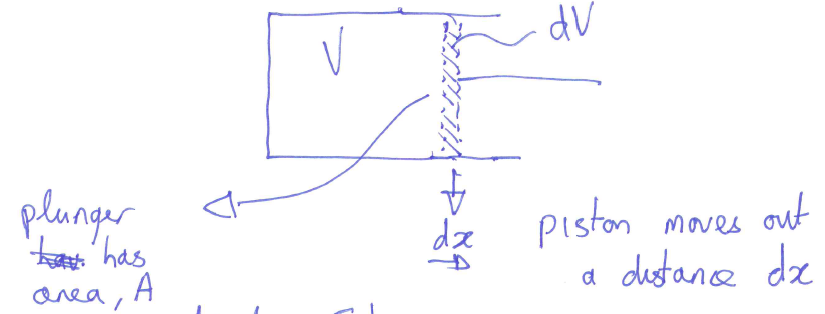 dV
V
plunger
has
area, A
dx
piston moves out
a distance dx